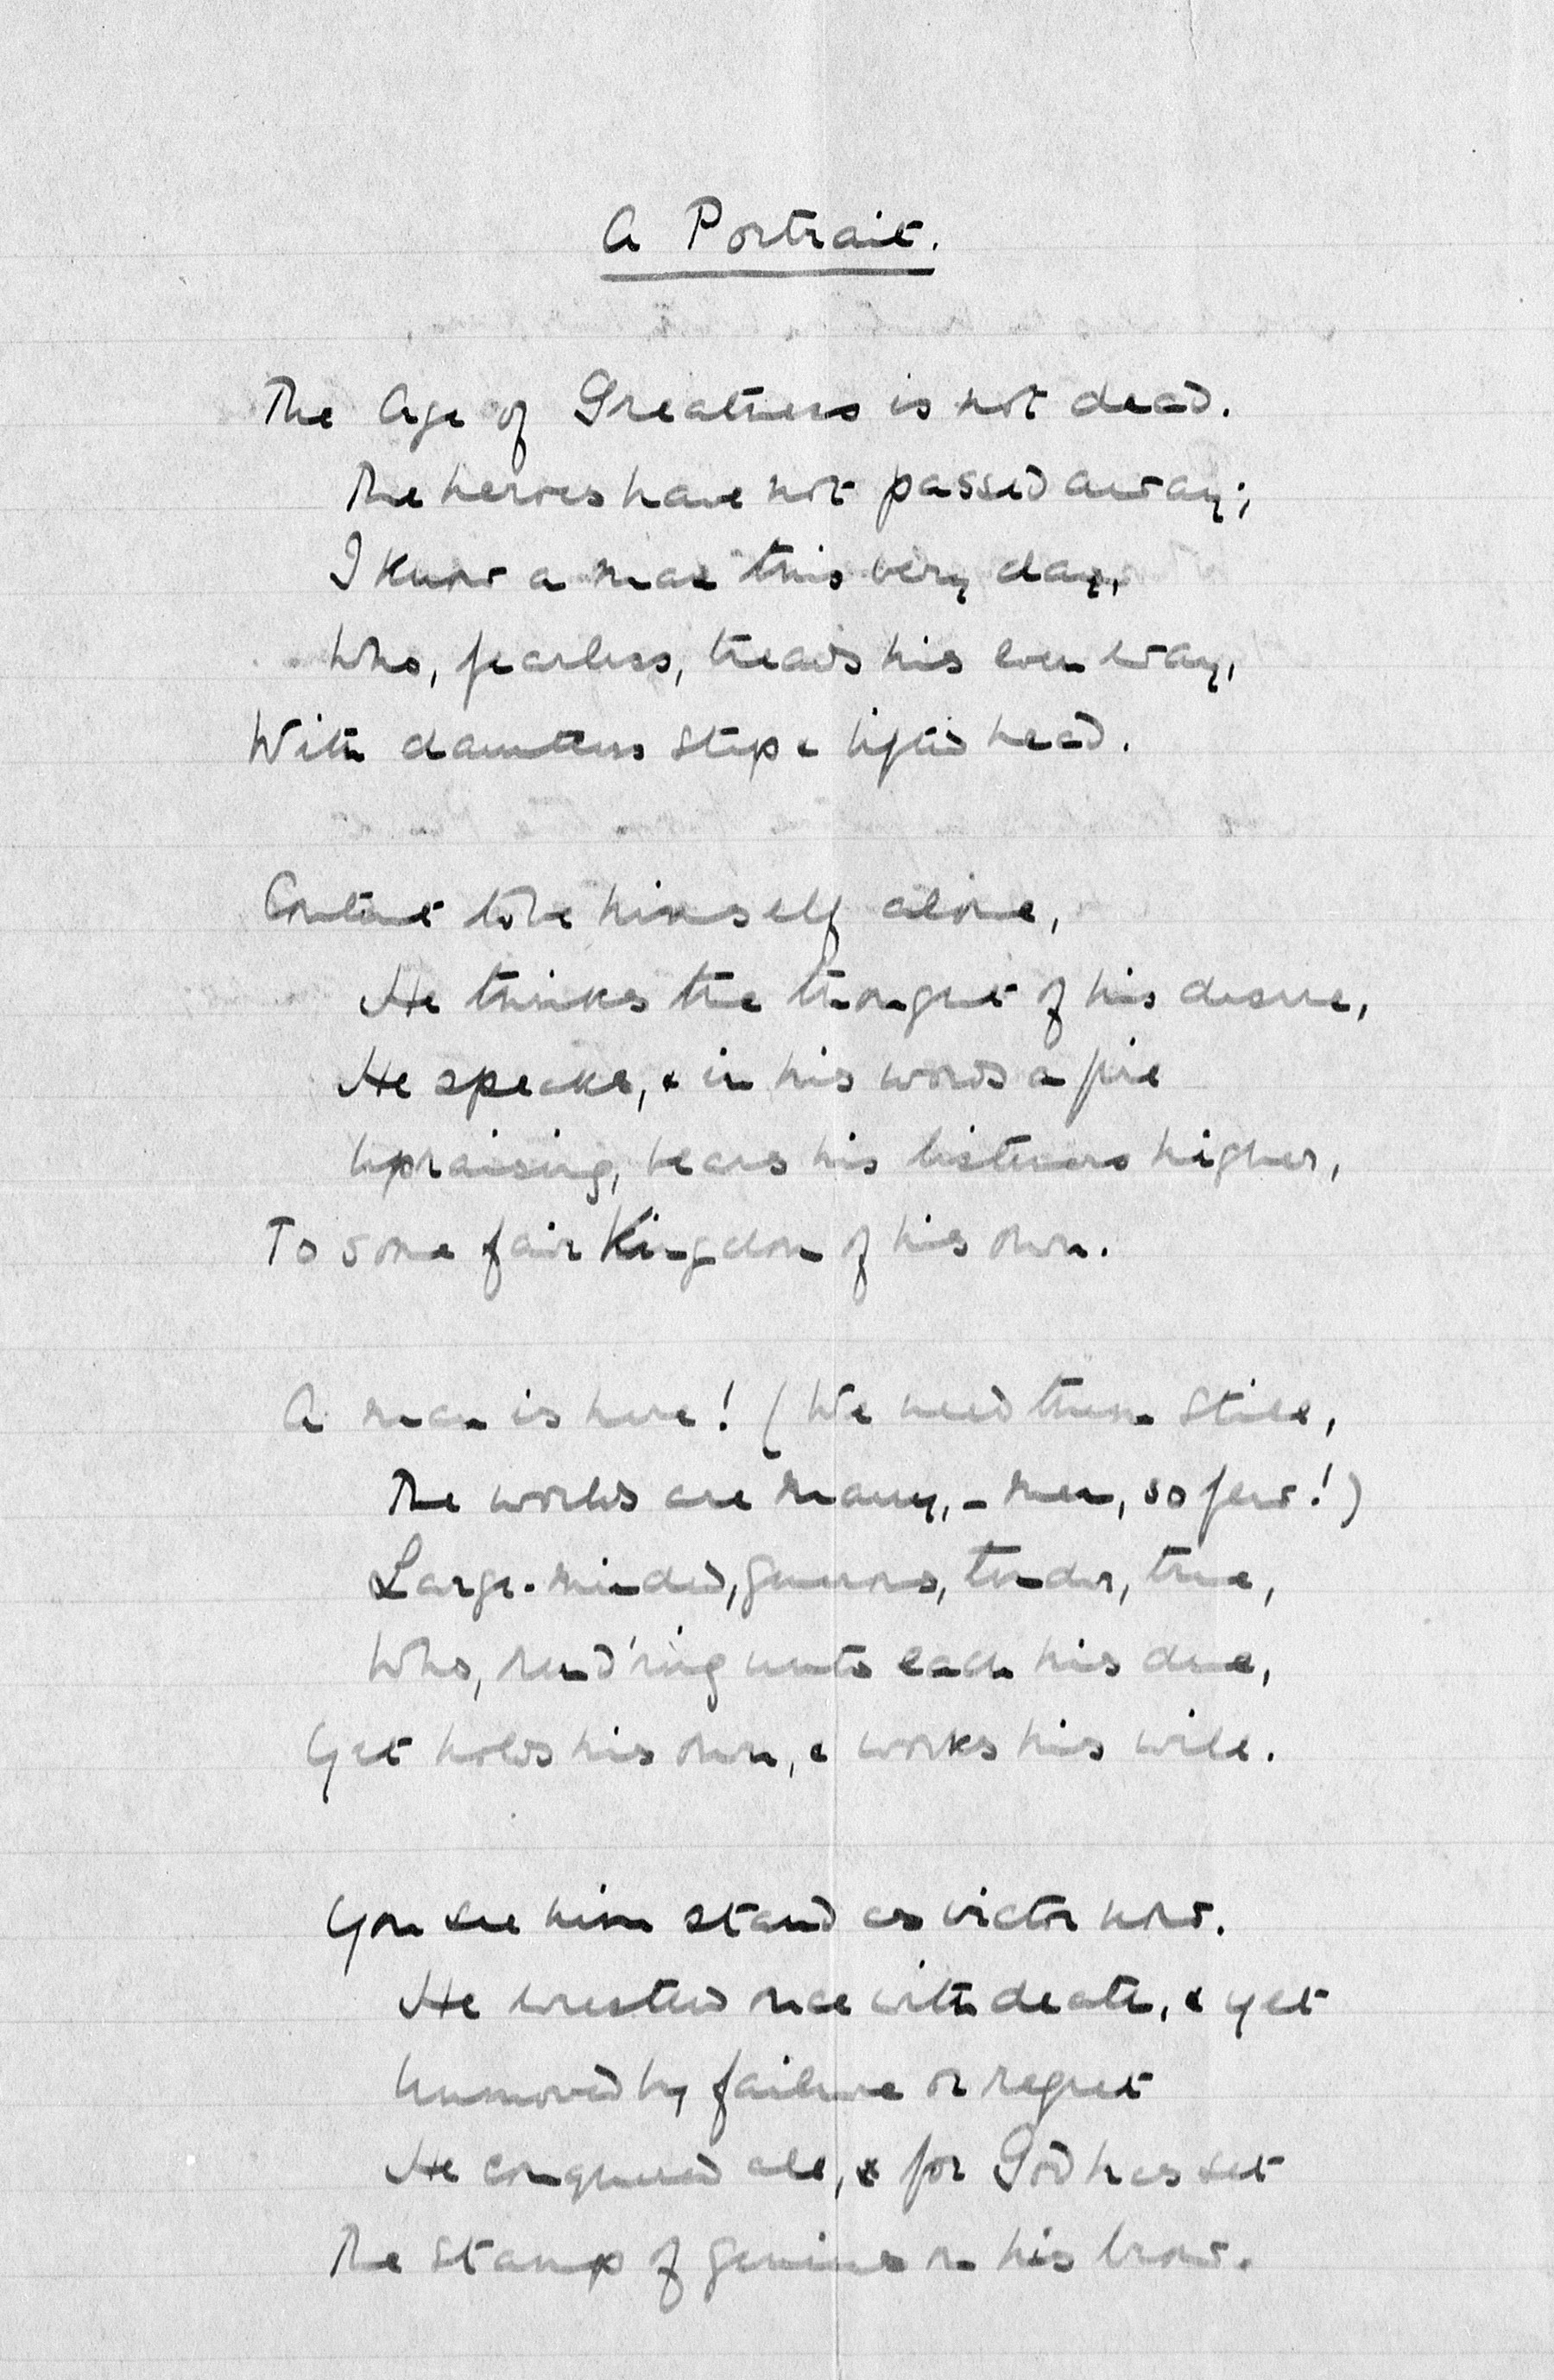 A Portrait.
The Age of Greatness is not dead.
The heroes have not passed away;
I know a man this very day,
Who, fearless, treads his even way,
With dauntless step & lifted head.
Content to be himself alone,
He thinks the thought of his desire,
He speaks, & in his words a fire
Upraising, bears his listeners higher,
To some fair Kingdom of his own.
A man is here! (We need them still,
The worlds are many, – men, so few!)
Large-minded, generous, tender, true,
Who, rend'ring unto each his due,
Yet holds his own, & works his will.
You see him stand as victor now.
He wrestled once with death, & yet
Unmoved by failure or regret
He conquered all, & for God has set
The stamp of genius on his brow.